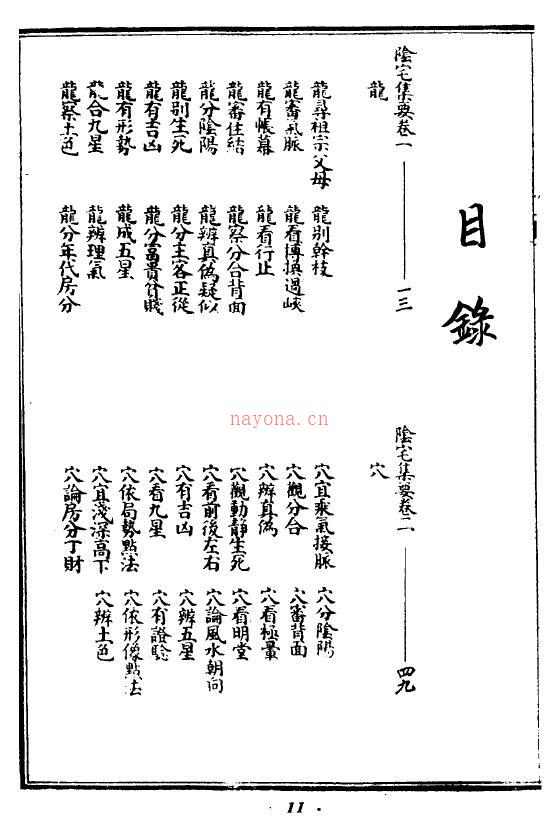 目錄
陰宅集要卷一 一三
龍
龍尋祖宗父母 龍別幹枝
龍審氣脈 龍看博換過峽
龍有帳幕 龍看行止
龍審住結 龍察分合背面
龍分陰陽 龍辨真偽疑似
龍別生死 龍分主客正從
龍有吉凶 龍分富貴貧賤
龍有形勢 龍成五星
龍合九星 龍辨理氣
龍察土色 龍分年代房分
陰宅集要卷二 四九
穴
穴宜乘氣接脈 穴分陰陽
穴觀分合 穴審背面
穴辨真偽 穴看極暈
穴觀動靜生死 穴看明堂
穴看前後左右 穴論風水朝向
穴有吉凶 穴辨五星
穴看九星 穴有證驗
穴依局勢點法 穴依形像點法
穴宜淺深高下 穴辨土色
穴論房分丁財
nayona.cn
· 11 ·